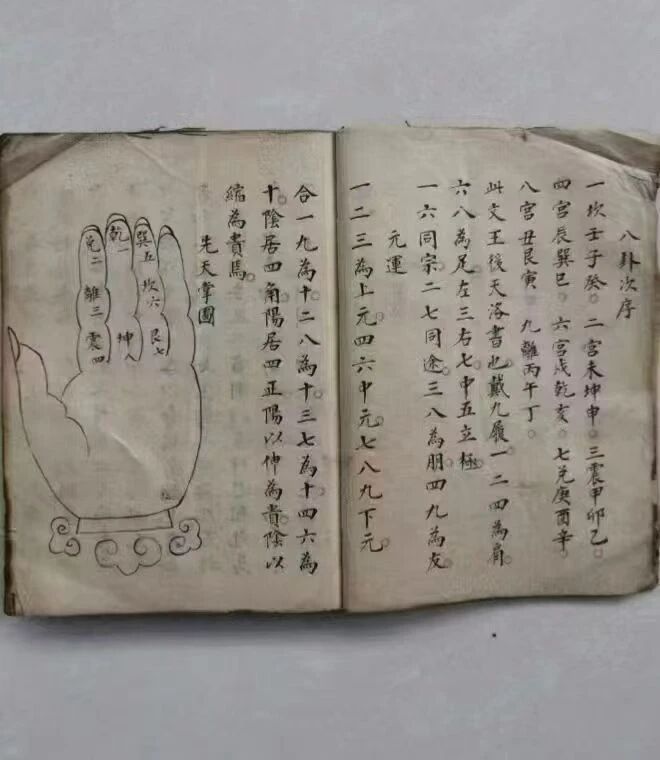 八卦次序
一坎壬子癸。二宮未坤申。三震甲卯乙。
四宮辰巽巳。六宮戌乾亥。七兑庚酉辛。
八宮丑艮寅。九離丙午丁。
此文王後天洛書也戴九履一二四為肩
六八為足左三右七中五立極
一六同宗二七同途三八為朋四九為友
元運
一二三為上元四六中元七八九下元
合一九為十二八為十三七為十四六為
十陰居四角陽居四正陽以伸為貴陰以
縮為貴焉
先天掌圖
巽五 坎六 艮七
乾一 坤八
兑二 離三 震四